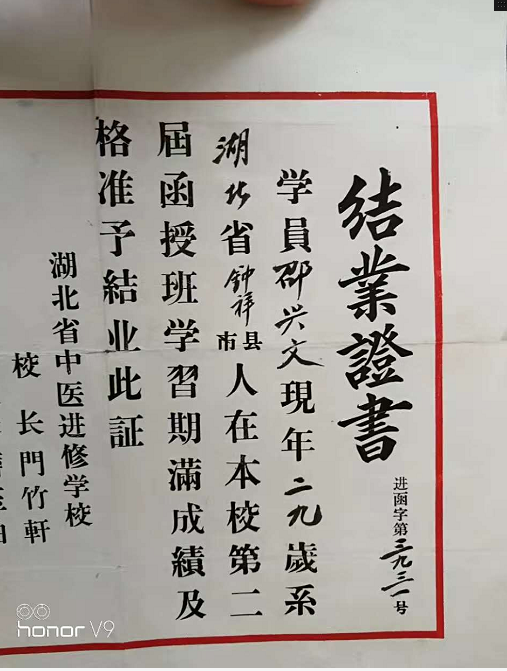 结業證書
进函字第三九三一号
学員邵兴文現年二九歲系
湖北省钟祥市县人在本校第二
屆函授班学習期滿成績及
格准予結业此証
湖北省中医进修学校
校长門竹軒
honor V9